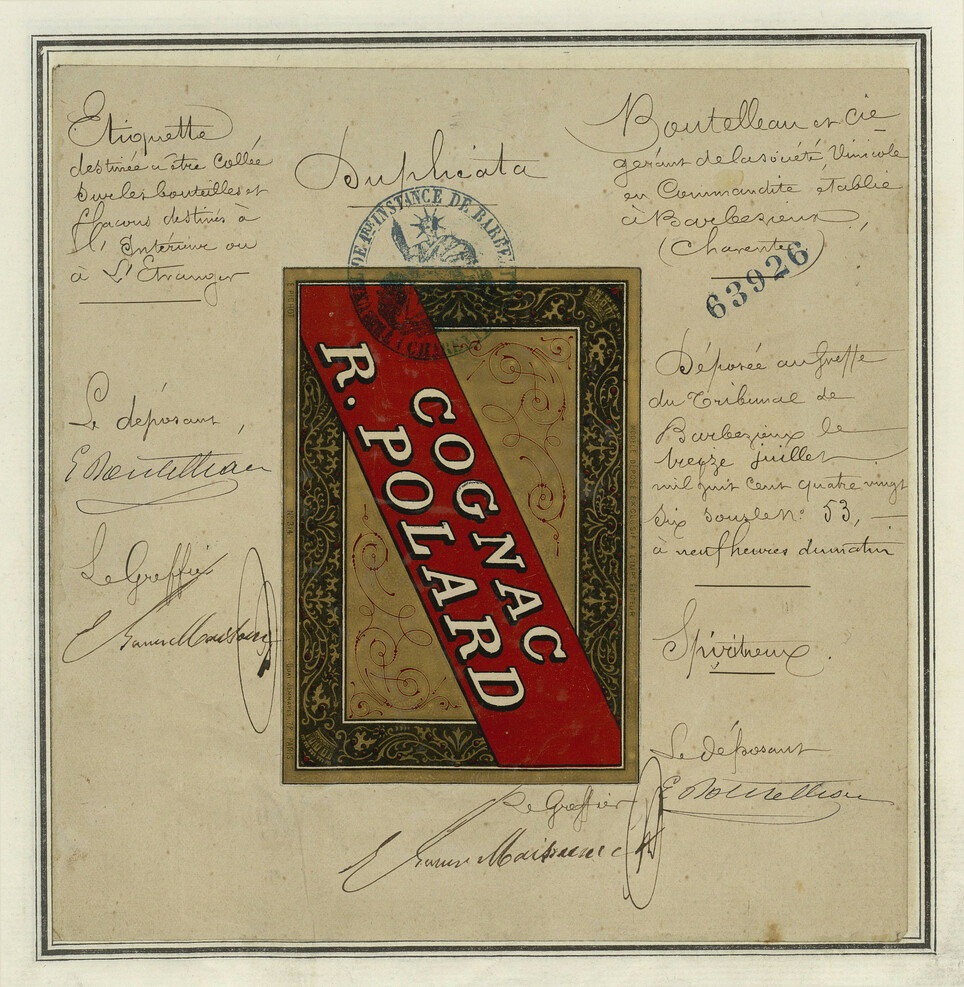 Etiquette
destinée à être collée
sur les bouteilles et
flacons destinés à
l'Intérieur ou
à L'Etranger
Duplicata
Boutelleau et Cie
gérant de la société Vinicole
en Commandite établie
à Barbezieux,
(Charente)
63926
DE 1RE INSTANCE DE BARBEZI
COGNAC
R. POLARD
Déposée au Greffe
du Tribunal de
Barbezieux le
treize juillet
mil huit cent quatre vingt
six sous le No 53,
à neuf heures du matin
Spiritueux.
Le déposant,
E Boutelleau
Le Greffier
Le déposant
E Boutelleau
Le Greffier